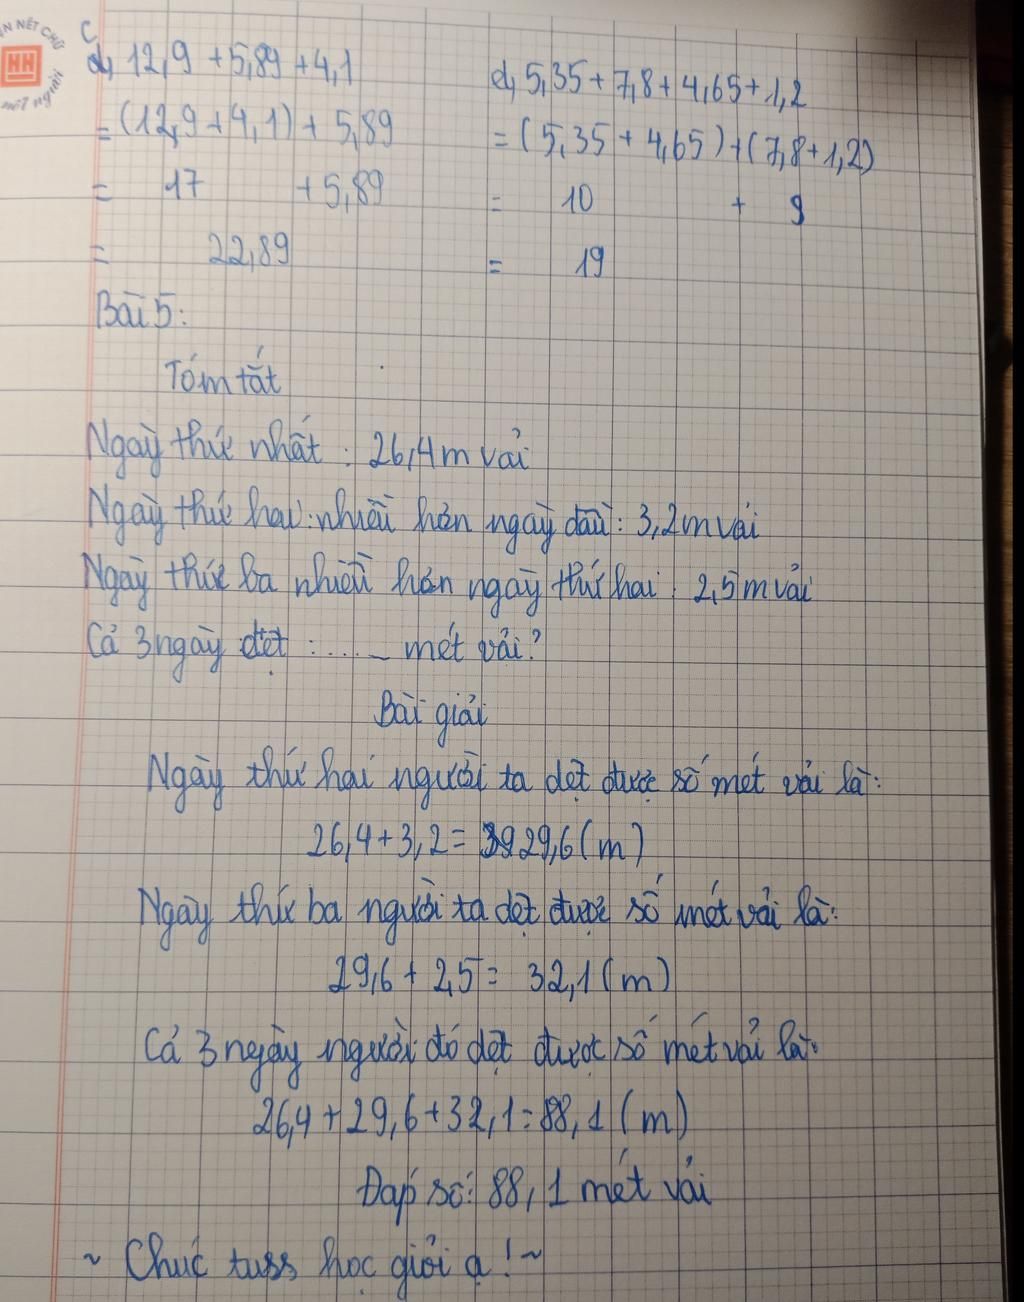 ÊN NÉT CHỮ
HH
nết người
c,
d, 12,9 + 5,89 + 4,1
= (12,9 + 4,1) + 5,89
= 17 + 5,89
= 22,89
d, 5,35 + 7,8 + 4,65 + 1,2
= (5,35 + 4,65) + (7,8 + 1,2)
= 10 + 9
= 19
Bài 5:
Tóm tắt
Ngày thứ nhất : 26,4m vải
Ngày thứ hai nhiều hơn ngày đầu : 3,2m vải
Ngày thứ ba nhiều hơn ngày thứ hai : 2,5m vải
Cả 3 ngày dệt : ..... mét vải?
Bài giải
Ngày thứ hai người ta dệt được số mét vải là:
26,4 + 3,2 = 29,6 (m)
Ngày thứ ba người ta dệt được số mét vải là:
29,6 + 2,5 = 32,1 (m)
Cả 3 ngày người đó dệt được số mét vải là:
26,4 + 29,6 + 32,1 = 88,1 (m)
Đáp số: 88,1 mét vải
~ Chúc tuss học giỏi ạ! ~